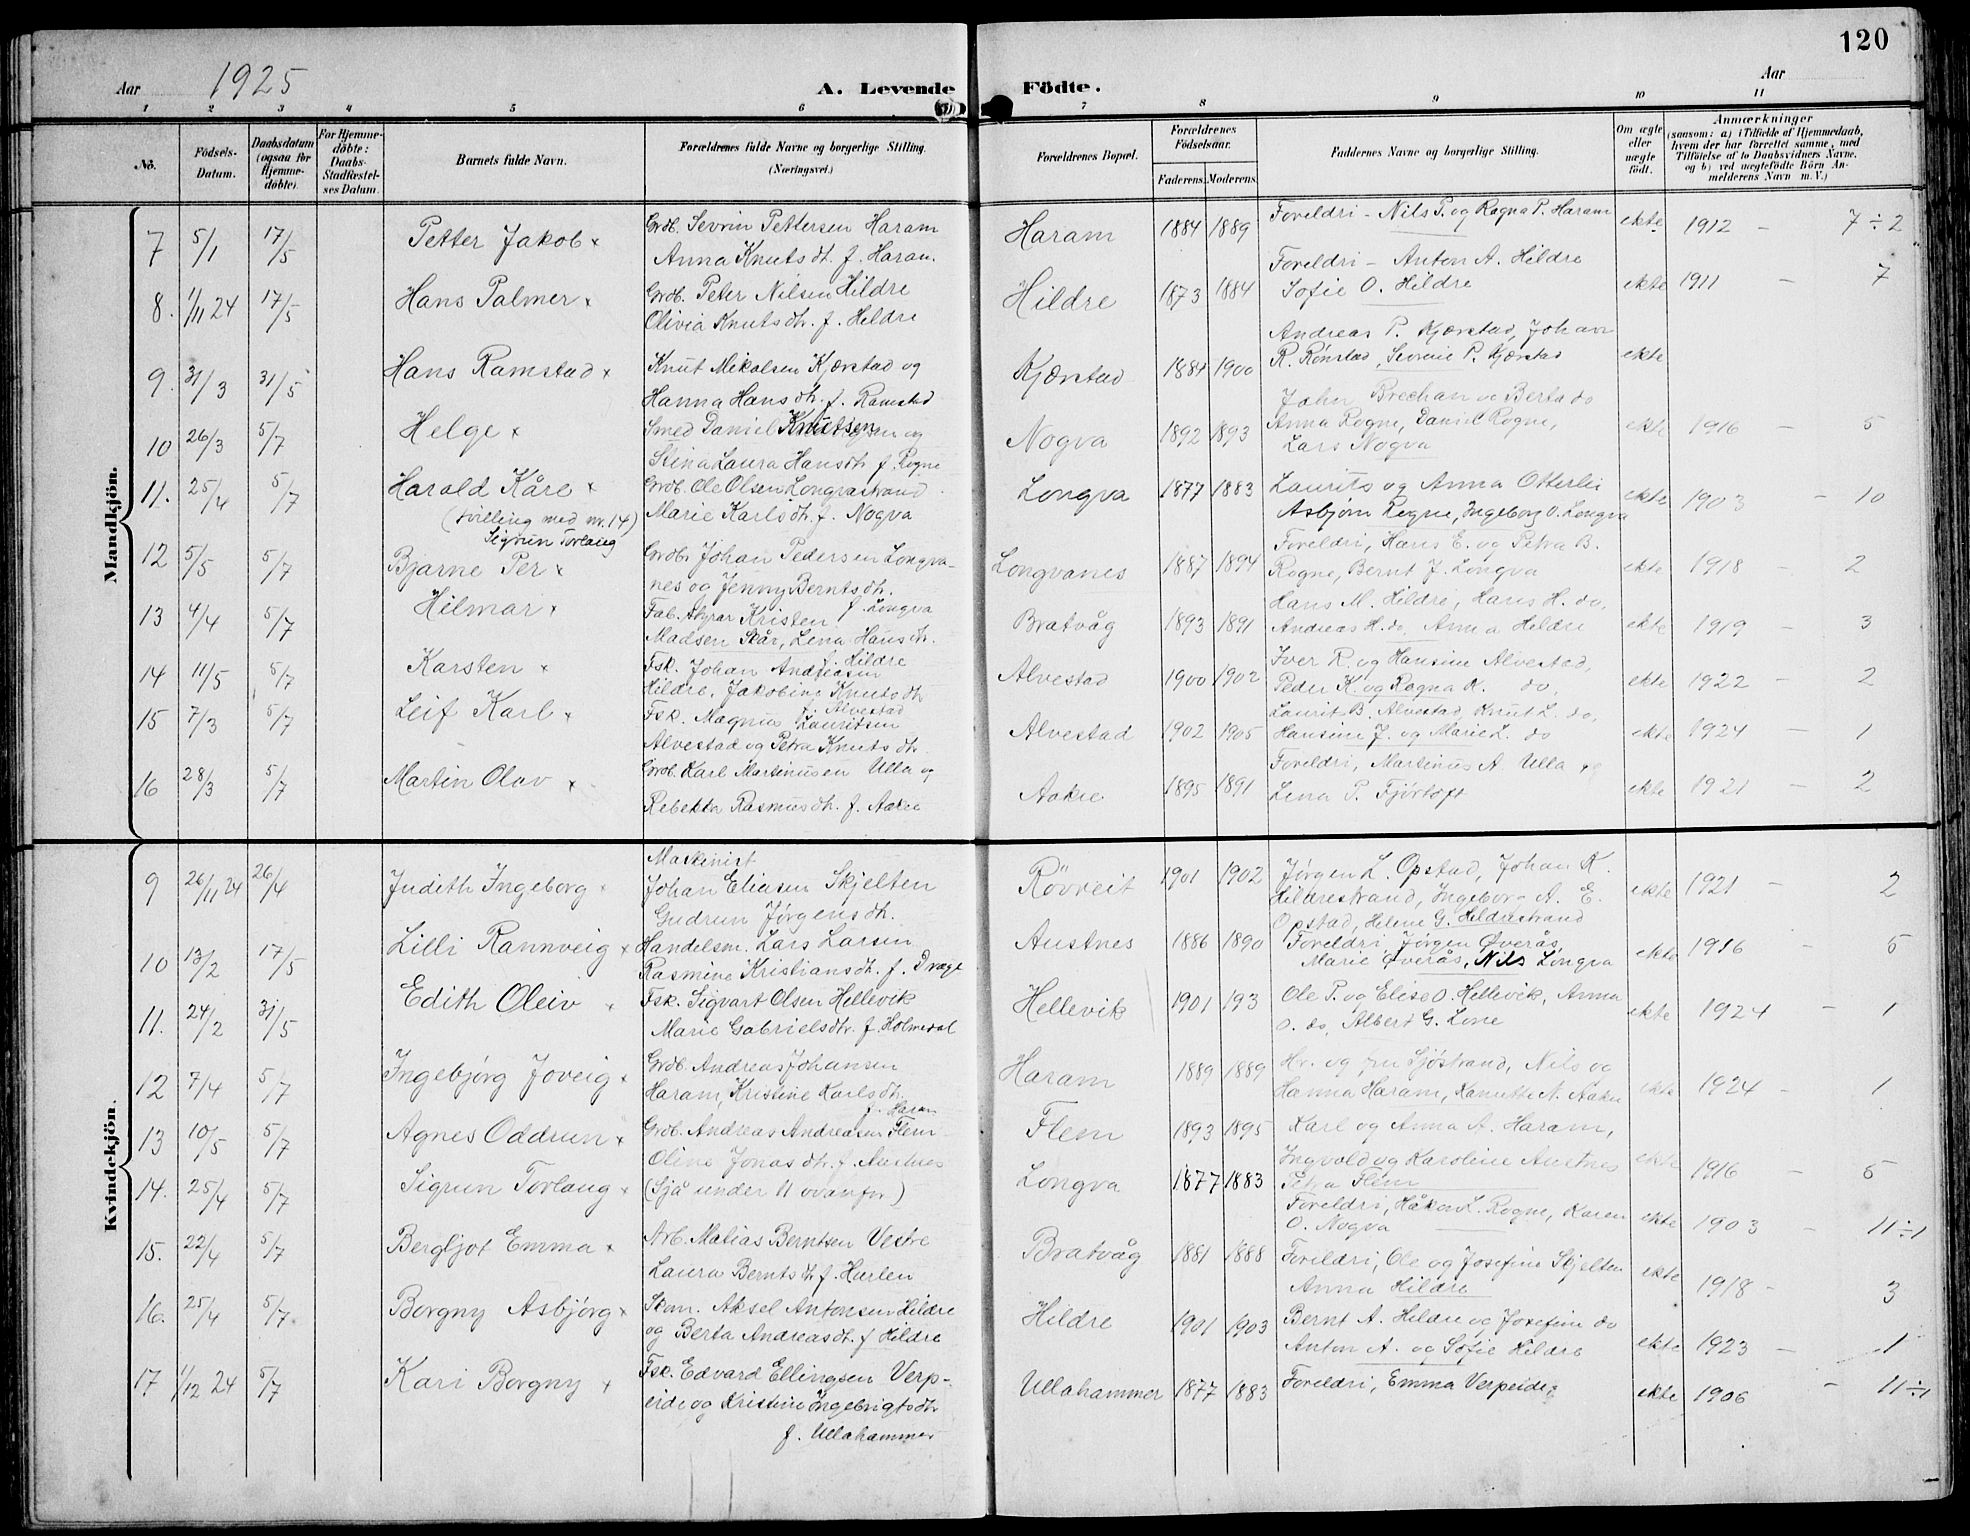 120
Aar 1925
A. Levende Födte.
Aar
1 2 3 4 5 6 7 8 9 10 11
No.
Födsels-Datum.
Daabsdatum (ogsaa for Hjemme-döbte).
For Hjemme-döbte: Daabs-Stadfæstel-ses Datum.
Barnets fulde Navn.
Forældrenes fulde Navne og borgerlige Stilling.
(Næringsvei.)
Forældrenes Bopæl.
Forældrenes Födselsaar.
Faderens. Moderens.
Faddernes Navne og borgerlige Stilling.
Om ægte eller uægte födt.
Anmærkninger
(saasom: a) i Tilfælde af Hjemmedaab, hvem der har forrettet samme, med Tilföielse af to Daabsvidners Navne, og b) ved uægtefödte Börn An-melderens Navn m. V.)
Mandkjön.
7 5/1 17/5 Petter Jakob x Grdb. Sevrin Pettersen Haram Haram 1884 1889 Foreldri - Nils P. og Ragna P. Haram ekte 1912 - 7 ÷ 2
Anna Knutsdt. f. Haram
8. 1/11 24 17/5 Hans Palmer x Grdb. Peter Nilsen Hildre Hildre 1873 1884 Foreldri - Anton A. Hildre ekte 1911 - 7
Olivia Knutsdtr. f. Hildre Sofie O. Hildre
9. 31/3 31/5 Hans Ramstad x Knut Mikalsen Kjærstad og Kjærstad 1884 1900 Andreas P. Kjærstad, Johan ekte
Hanna Hansdtr. f. Ramstad R. Rønstad, Sevrine P. Kjærstad
10 26/3 5/7 Helge x Smed Daniel Knutsen og Nogva 1892 1893 John Brechan og Berta do ekte 1916 - 5
Stina Laura Hansdtr f. Rogne Anna Rogne, Daniel Rogne,
Lars Nogva
11. 25/4 5/7 Harald Kåre x Grdb. Ole Olsen Longvastrand Longva 1877 1883 Laurits og Anna Otterlei ekte 1903 - 10
(tvilling med nr. 14) Marie Karlsdtr. f. Nogva Asbjørn Rogne, Ingeborg O. Longva
Sigrun Torlaug
12 5/5 5/7 Bjarne Per x Grdbr Johan Pedersen Longva- Longvanes 1887 1894 Foreldri, Hans E. og Petra B. ekte 1918 - 2
nes og Jenny Berntsdtr. Rogne, Bernt J. Longva
f. Longva
13 4/4 5/7 Hilmar x Fab. styrar Kristen Bratvåg 1893 1891 Hans M. Hildre, Hans H. do. ekte 1919 - 3
Madsen Skår, Lena Hansdtr. Andreas H. do, Anna Hildre
f. Hildre
14 11/5 5/7 Karsten x Fsk. Johan Andreasen Alvestad 1900 1902 Iver R. og Hansine Alvestad, ekte 1922 - 2
Hildre, Jakobine Knutsdtr Peder K. og Ragna K. do.
f. Alvestad
15 7/3 5/7 Leif Karl x Fsk. Magnus Lauritsen Alvestad 1902 1905 Laurit B. Alvestad, Knut L. do, ekte 1924 - 1
Alvestad og Petra Knutsdtr. Hansine J. og Marie L. do
16 28/3 5/7 Martin Olav x Grdb. Karl Martinussen Ulla og Aakre 1895 1891 Foreldri, Martinus A. Ulla ekte 1921 - 2
Rebekka Rasmusdtr. f. Aakre Lena P. Fjørtoft
Kvindekjön.
9 26/11 24 26/4 Judith Ingeborg x Maskinist Røvreit 1901 1902 Jørgen L. Opstad, Johan K. ekte 1921 - 2
Johan Eliasen Skjelten Hildrestrand, Ingeborg A. E.
Gudrun Jørgensdtr. Opstad, Helene G. Hildrestrand
10 13/2 17/5 Lilli Rannveig x Handelsm. Lars Larsen Austnes 1886 1890 Foreldri, Jørgen Øverås, ekte 1916 - 5
Rasmine Kristiansdtr. f. Drage Marie Øverås, Nils Longva
11. 24/2 31/5 Edith Oleiv x Fsk. Sigvart Olsen Hellevik Hellevik 1901 193 Ole P. og Elise O. Hellevik, Anna ekte 1924 - 1
Marie Gabrielsdtr. f. Holmedal O. do, Albert G. Lone
12 7/4 5/7 Ingebjørg Joveig x Grdb. Andreas Johansen Haram 1889 1889 Hr. og fru Sjøstrand, Nils og ekte 1924 - 1
Haram, Kristine Karlsdtr. Hanna Haram, Kanutte N. Aakre
f. Haram
13 10/5 5/7 Agnes Oddrun x Grdb. Andreas Andreasen Flem Flem 1893 1895 Karl og Anna A. Haram, ekte 1916 - 5
Oline Jonasdtr. f. Austnes Ingvald og Karoline Austnes
Petra Flem
14. 25/4 5/7 Sigrun Torlaug x (Sjå under 11 ovanfor) Longva 1877 1883 Foreldri, Håkon L. Rogne, Karen ekte 1903 - 11÷1
O. Nogva
15. 22/4 5/7 Bergljot Emma x Arb. Matias Berntsen Vestre Bratvåg 1881 1888 Foreldri, Ole og Josefine Skjelten ekte 1918 - 3
Laura Berntsdtr f. Hurlen Anna Hildre
16. 25/4 5/7 Borgny Asbjørg x Skom. Aksel Antonsen Hildre Hildre 1901 1903 Bernt A. Hildre og Josefine do ekte 1923 - 1
og Berta Andreasdtr. f Hildre Anton A. og Sofie Hildre
17 1/12 24 5/7 Kari Borgny x Fsk. Edvard Ellingsen Verp- Ullahammer 1877 1883 Foreldri, Emma Verpeide ekte 1906 - 11÷1
eide og Kristine Ingebrigtsdtr
f. Ullahammer